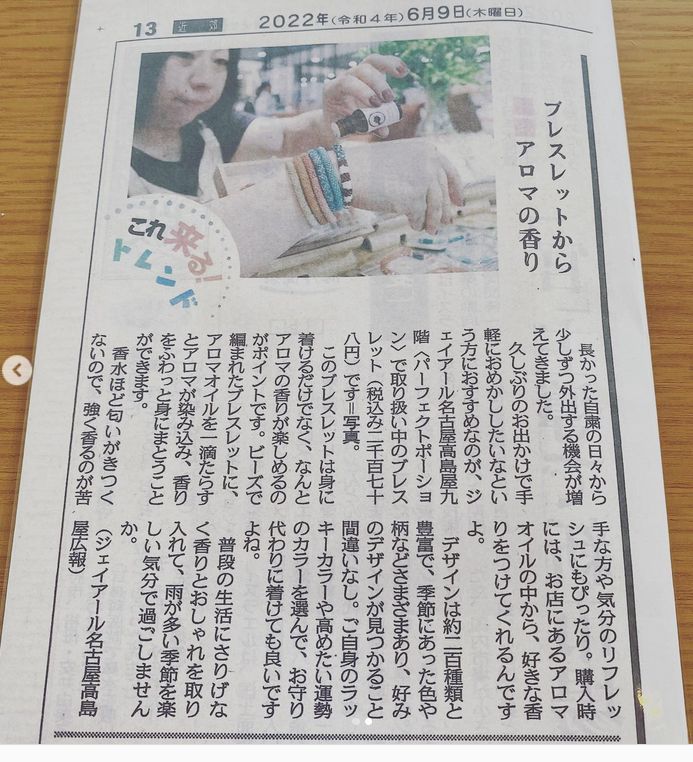 13 近郊 2022年(令和4年)6月9日(木曜日)
ブレスレットから
アロマの香り
これ来る!
トレンド
長かった自粛の日々から
少しずつ外出する機会が増
えてきました。
久しぶりのお出かけで手
軽におめかししたいなとい
う方におすすめなのが、ジ
ェイアール名古屋高島屋九
階〈パーフェクトポーショ
ン〉で取り扱い中のブレス
レット(税込み二千百七十
八円)です=写真。
このブレスレットは身に
着けるだけでなく、なんと
アロマの香りが楽しめるの
がポイントです。ビーズで
編まれたブレスレットに、
アロマオイルを一滴たらす
とアロマが染み込み、香り
をふわっと身にまとうこと
ができます。
香水ほど匂いがきつく
ないので、強く香るのが苦
手な方や気分のリフレッ
シュにもぴったり。購入時
には、お店にあるアロマ
オイルの中から、好きな香
りをつけてくれるんです
よ。
デザインは約二百種類と
豊富で、季節にあった色や
柄などさまざまあり、好み
のデザインが見つかること
間違いなし。ご自身のラッ
キーカラーや高めたい運勢
のカラーを選んで、お守り
代わりに着けても良いです
よね。
普段の生活にさりげな
く香りとおしゃれを取り
入れて、雨が多い季節を楽
しい気分で過ごしません
か。
(ジェイアール名古屋高島
屋広報)